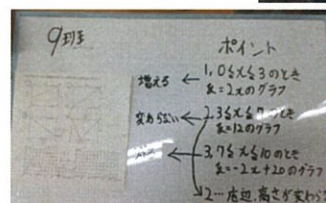 9班
ポイント
増える ← 1, 0≦x≦3のとき
y=2xのグラフ
変わらない ← 2, 3≦x≦7のとき
y=12のグラフ
← 3, 7≦x≦10のとき
y=-2x+20のグラフ
2…底辺、高さが変わら